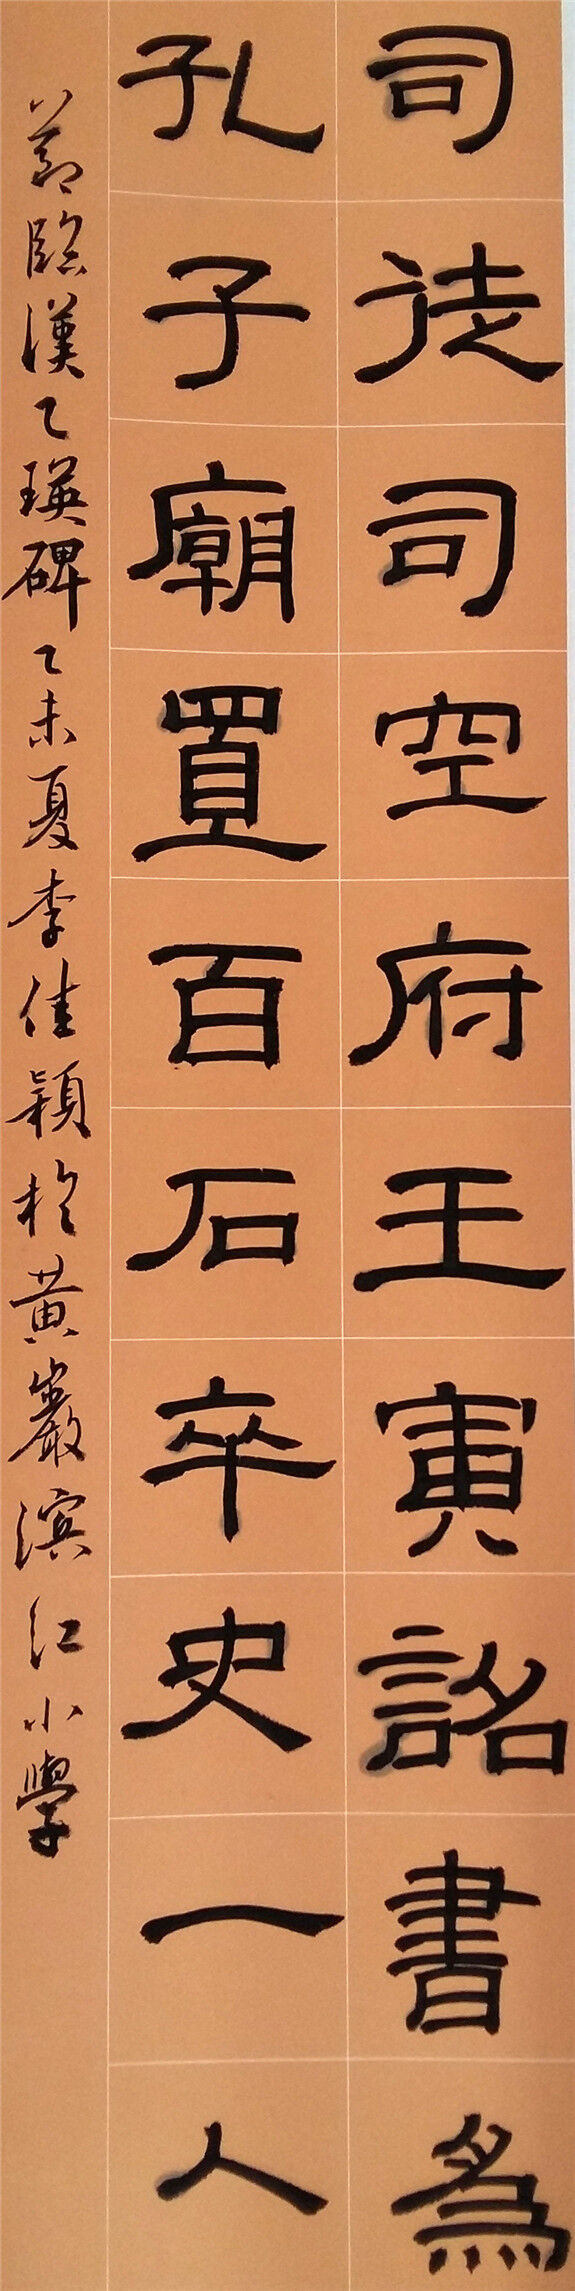 司徒司空府王寅詺書為
孔子廟置百石卒史一人
節臨漢乙瑛碑乙未夏李佳穎於黄巖滨红小學